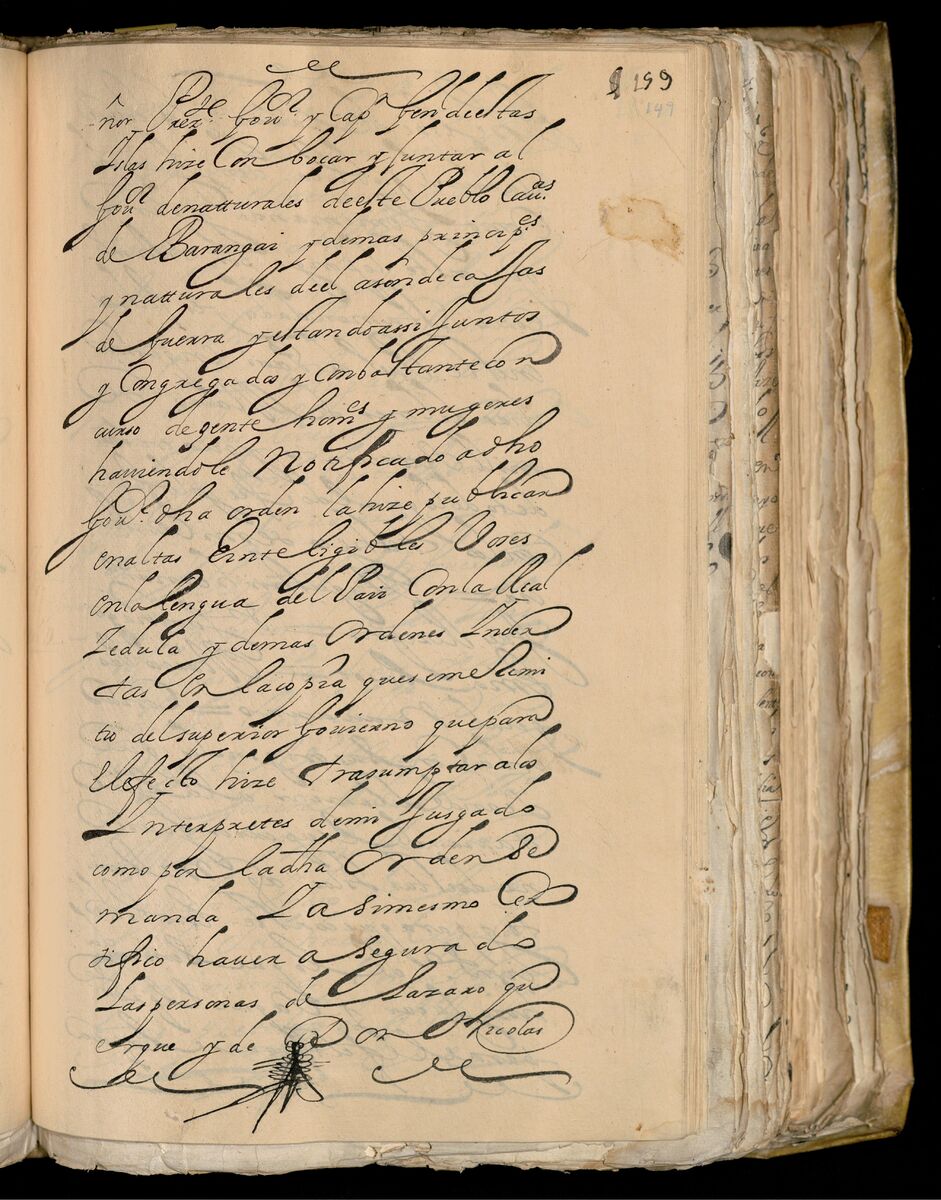 199
149
ñor Prezte. Govor. y Capn. Genl deestas
Islas hize Conbocar y Juntar al
Govor. denatturales deeste Pueblo Cavas.
de Barangai y demas principes
y natturales deel asonde caxas
de Guerra y estandoassi Juntos
y Congregados y Conbastantecon
curso degente homes y mugeres
haviendole Notificado adho
Govor. dha orden la hize publicar
enaltas Einteligibles Vozes
enlalengua del Pais Conla Real
Zedula y demas Ordenes Inser
tas En lacopia quesemeRemi
tio delsuperior Govierno quepara
Elefecto hize trasumptar alos
Interpretes demi Jusgado
como por ladha OrdenSe
manda Y asimesmo Cer
tifico haver asegurado
Laspersonas de Lazaro qu
erque y de Don Nicolas